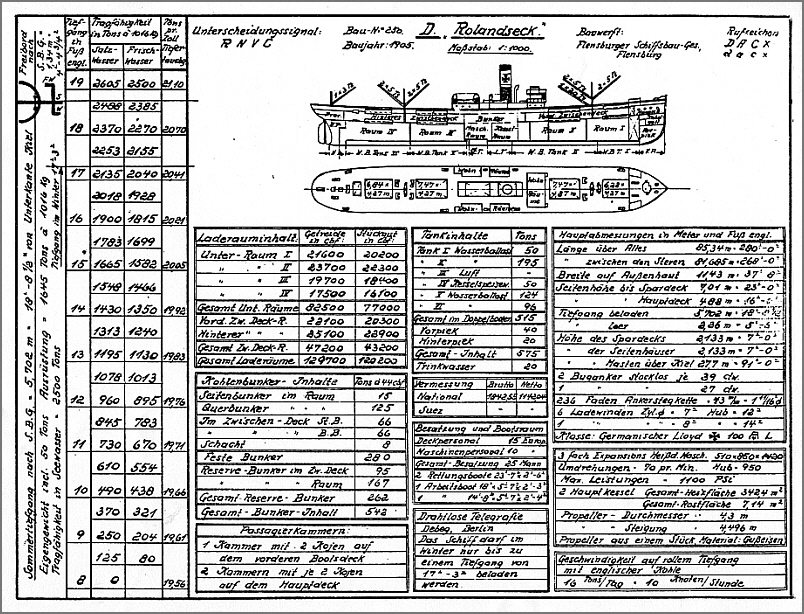 Unterscheidungssignal:
R N V C
Bau-Nr 250.
Baujahr: 1905.
D. "Rolandseck."
Maßstab: 1:1000.
Bauwerft:
Flensburger Schiffsbau-Ges.
Flensburg
Rufzeichen
D A C X
d a c x
Freibord
nach
S.B.G. =
1,34 m
4'-4 3/4"
FW
Tief-
gang
in
Fuß
engl.
Tragfähigkeit
in Tons á 1016 kg
Salz-
Wasser
Frisch-
Wasser
Tons
pr.
Zoll
19 2605 2500 2110
2488 2385
18 2370 2270 2070
2253 2155
17 2135 2040 2041
2018 1928
16 1900 1815 2021
1783 1699
15 1665 1582 2005
1548 1466
14 1430 1350 19,92
1313 1240
13 1195 1130 19,83
1078 1013
12 960 895 19,76
845 783
11 730 670 19,71
610 554
10 490 438 19,66
370 321
9 250 204 19,61
125 80
8 0 19,56
Sommertiefgang nach S.B.G. = 5,702 m = 18'-8 1/2" von Unterkante Kiel
Eigengewicht incl. 50 Tons Ausrüstung = 1645 Tons á 1016 kg
Tragfähigkeit in Seewasser = 2500 Tons
Tiefgang im Winter 17'-3"
Hinteres Zwischendeck
Bunker
Vord. Zwischendeck
Raum IV
Raum III
Masch.
Raum
Kessel
Raum
Raum II
Raum I
W.B. Tank II
W.B.T. I
6,84 m
4,27 m
7,47 m
4,27 m
7,47 m
4,27 m
6,28 m
4,27 m
Laderauminhalt: Getreide in cbf: Stückgut in cbf:
Unter-Raum I 21600 20200
" " II 23700 22300
" " III 19700 18400
" " IV 17500 16100
Gesamt Unt. Räume 82500 77000
Vord. Zw. Deck-R. 22100 20300
Hinterer " " 25100 22900
Gesamt Zw. Deck-R. 47200 43200
Gesamt Laderäume 129700 120200
Kohlenbunker-Inhalte Tons á 44 cbf
Seitenbunker im Raum 15
Querbunker " " 125
Im Zwischen-Deck St.B. 66
" " " B.B. 66
Schacht 8
Feste Bunker 280
Reserve-Bunker im Zw. Deck 95
" " " Raum 167
Gesamt-Reserve-Bunker 262
Gesamt-Bunker-Inhalt 542
Passagierkammern:
1 Kammer mit 2 Kojen auf
dem vorderen Bootsdeck
2 Kammern mit je 2 Kojen
auf dem Hauptdeck
Tankinhalte Tons
Tank I Wasserballast 50
" II " 195
" III Luft -
" IV Kesselspeisew. 50
" V Wasserballast 124
" VI " 96
Gesamt im Doppelboden 515
Vorpiek 40
Hinterpiek 20
Gesamt-Inhalt 575
Trinkwasser 20
Vermessung Brutto Netto
National
Suez - -
Besatzung und Bootsraum
Deckpersonal 15 Europ.
Maschinenpersonal 10 "
Gesamt-Besatzung 25 Mann
2 Rettungsboote 23'-7'-2'-6"
1 Arbeitsboot 18'-5'-7'-2'-3"
1 " 14'-8"-5'-7'-2'-4"
Drahtlose Telegrafie
Debeg, Berlin
Das Schiff darf im
Winter nur bis zu
einem Tiefgang von
17'-3" beladen
werden.
Hauptabmessungen in Meter und Fuß engl.
Länge über Alles 85,34 m = 280'-0"
" zwischen den Steven 81,685 m = 268'-0"
Breite auf Außenhaut 11,43 m 37' 6"
Seitenhöhe bis Spardeck 7,01 m = 23'-0"
" " Hauptdeck 4,88 m = 16'-0"
Tiefgang beladen 5,702 m = 18'-8 1/2"
" leer
Höhe des Spardecks 2,133 m = 7'-0"
" der Seitenhäuser 2,133 m = 7'-0"
" " Masten über Kiel 27,7 m = 91'-0"
2 Buganker Stocklos je 39 ctw.
1 " " 27 ctw.
236 Faden Ankerstegkette
6 Ladewinden Zyl.ø = 7" Hub = 12"
1 " " 8" " 14"
Klasse: Germanischer Lloyd ✠ 100 A L
3 fach Expansions Heißd. Masch. 510 × 850 × 1400
Umdrehungen 70 pr. Min. Hub = 950
Max. Leistungen - 1100 PSi
2 Hauptkessel Gesamt-Heizfläche 342,4 m²
Gesamt-Rostfläche 7,14 m²
Propeller-Durchmesser 4,3 m
" - Steigung 4,496 m
Propeller aus einem Stück, Material: Gußeisen
Geschwindigkeit auf vollem Tiefgang
mit englischer Kohle
16 Tons/Tag = 10 Knoten/Stunde